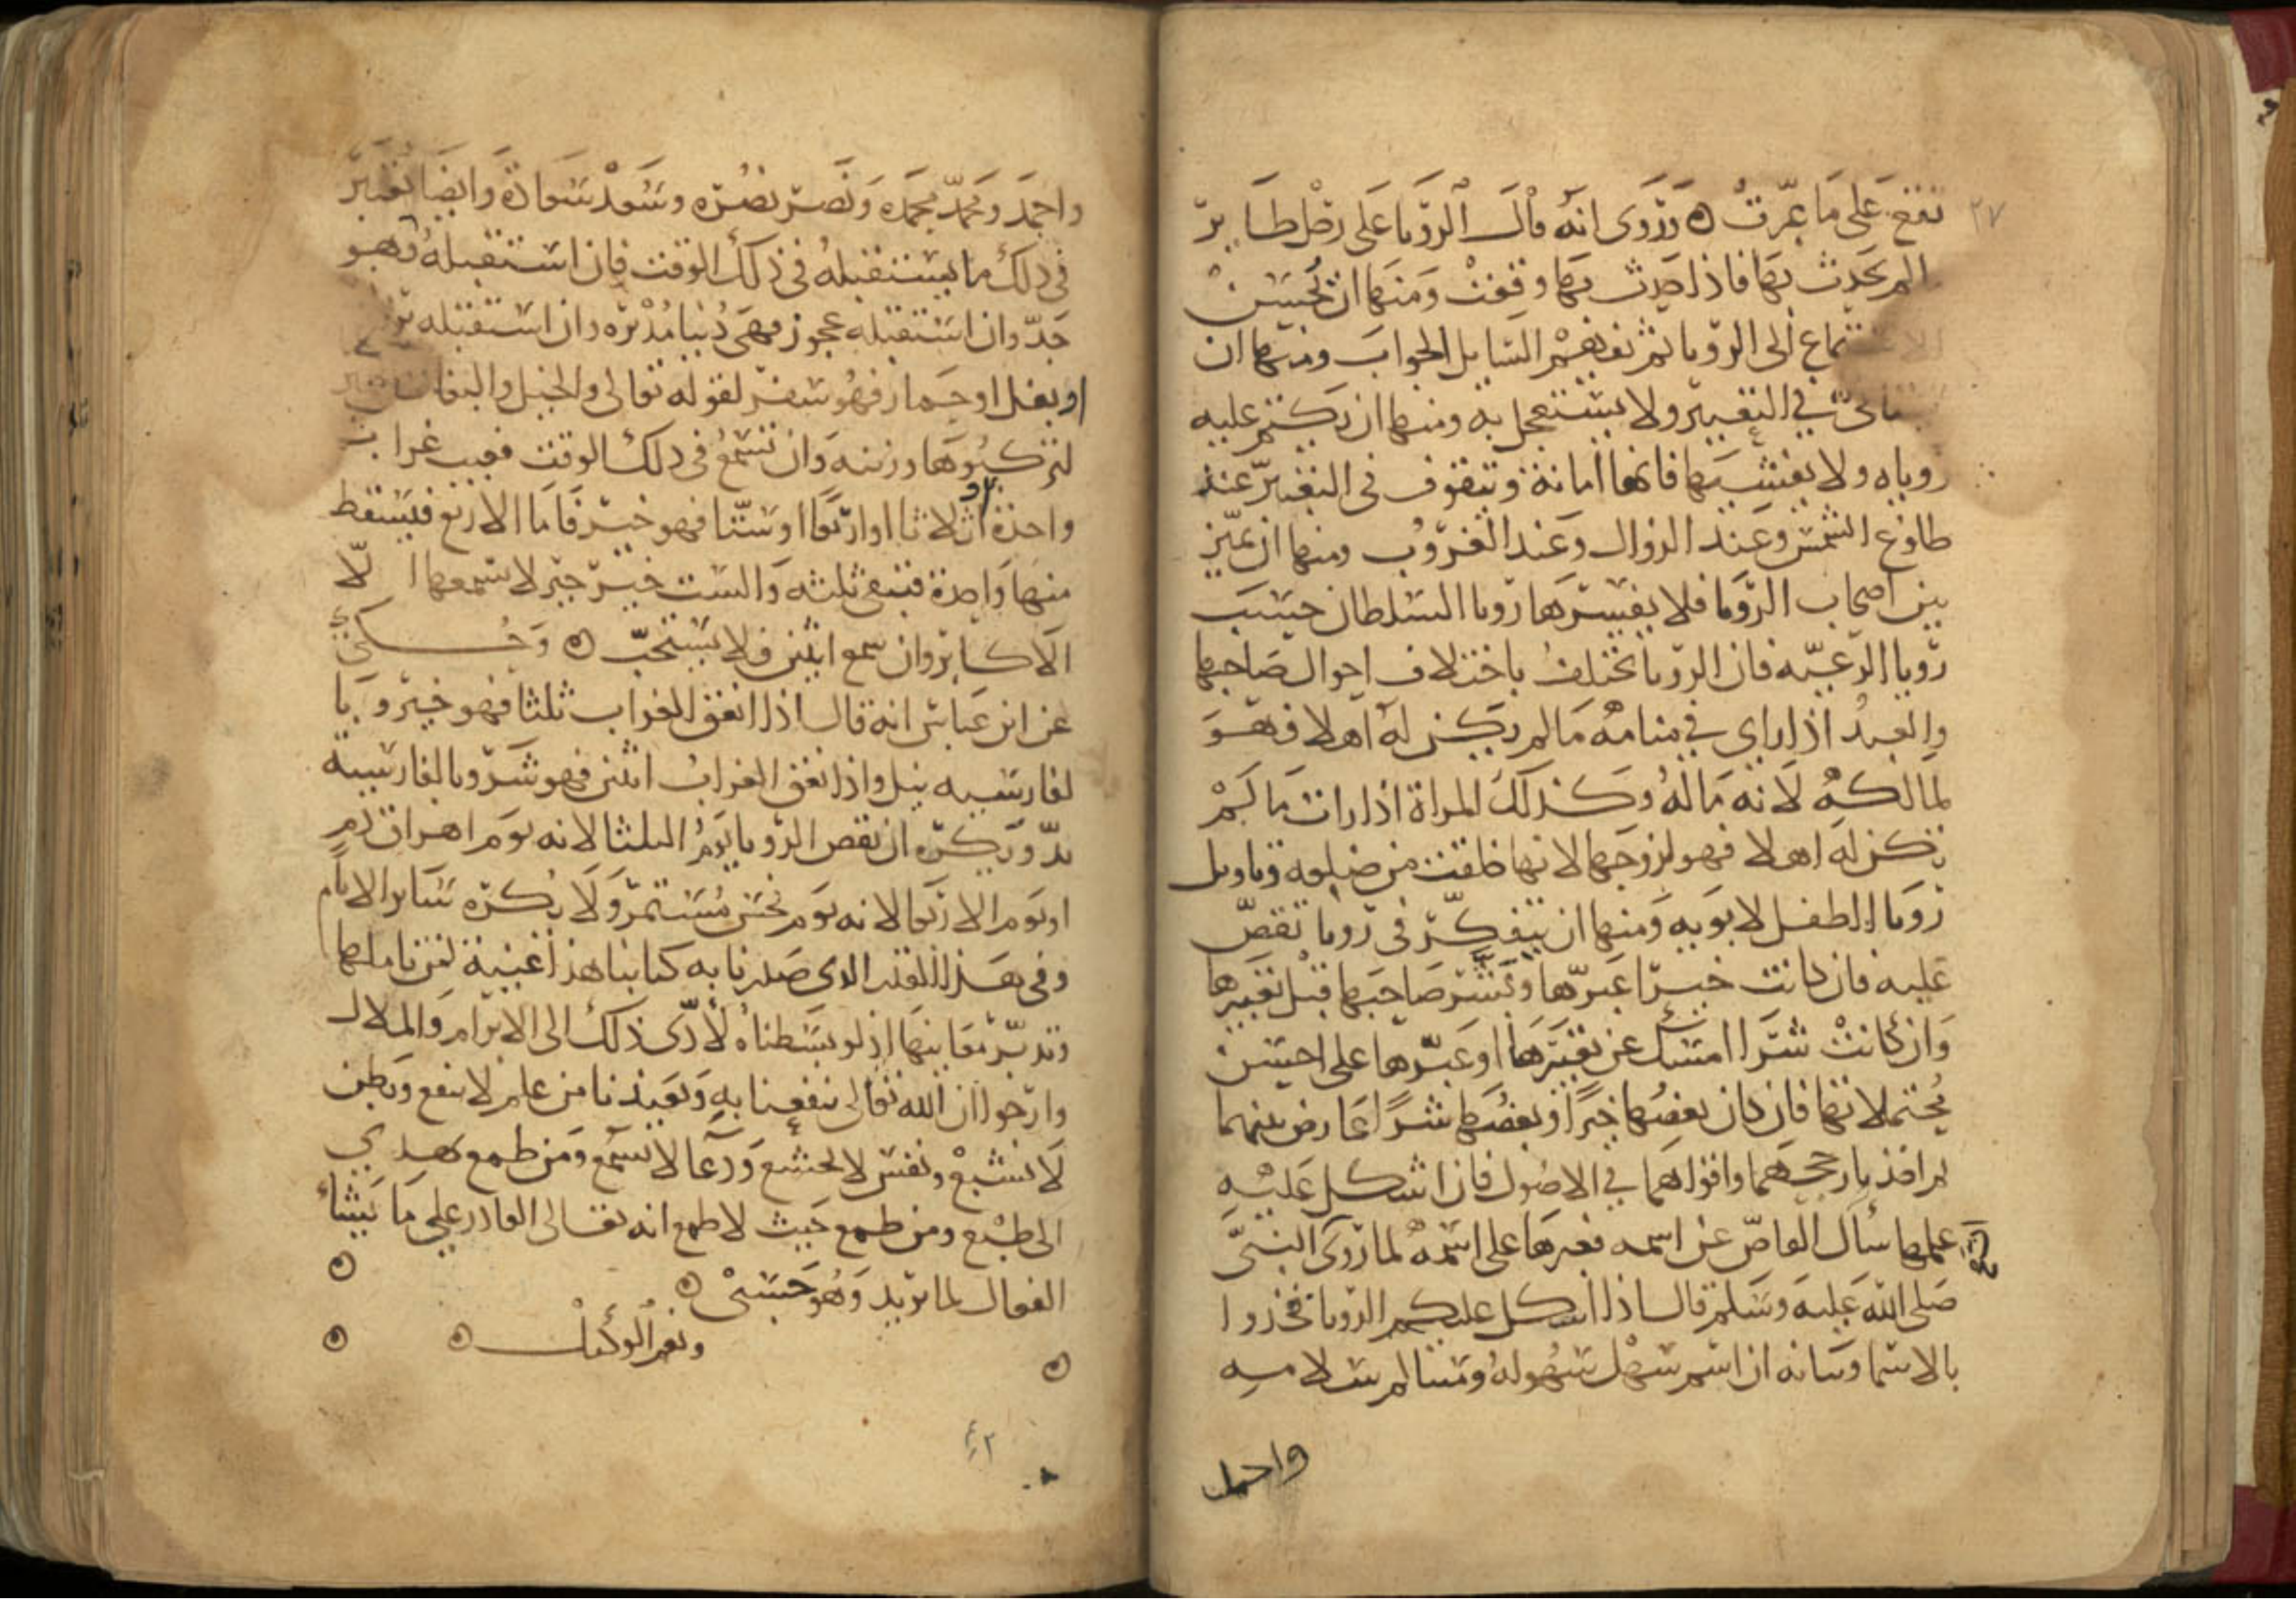 ٢٧
تقع على ما عبرت ه وروى انه قال الرويا على رجل طاير
ما لم يحدث بها فاذا حدث بها وقعت ومنها ان يحسن
الاستماع الى الرويا ثم يفهم السايل الجواب ومنها ان
يتانى في التعبير ولا يستعجل به ومنها ان يكتم عليه
روياه ولا يفشيها فانها امانة ويتوقف في التعبير عند
طلوع الشمس وعند الزوال وعند الغروب ومنها ان يميز
بين اصحاب الرويا فلا يفسر ها رويا السلطان حسب
رويا الرعيه فان الرويا تختلف باختلاف احوال صاحبها
والعبد اذا راى في منامه ما لم يكن له اهلا فهو
لمالكه لانه ماله وكذلك المراة اذا رات ما لم
تكن له اهلا فهو لزوجها لانها خلقت من ضلعه وتاويل
رويا الطفل لابويه ومنها ان يتفكر في رويا تقص
عليه فان كانت خيرا عبرها وبشر صاحبها قبل تعبيرها
وان كانت شرا امسك عن تعبيرها او عبرها على احسن
محتملاتها فان كان بعضها خيرا وبعضها شرا عارض بينهما
ثم اخذ بارجحهما واقواهما في الاصول فان اشكل عليه
علمها سال القاص عن اسمه فعبرها على اسمه لما روى النبي
صلى الله عليه وسلم قال اذا اشكل عليكم الرويا فخذوا
بالاسما وبيانه ان اسم سهل سهوله وسالم سلامه
واحمد
واحمد ومحمد محمده ونصر نصره وسعد سعادة وايضا تعبير
في ذلك ما يستقبله في ذلك الوقت فان استقبله فهو
جد وان استقبله عجوز فهى دنيا مدبره وان استقبله
او بغل او حمار فهو سفر لقوله تعالى والخيل والبغال والحمير
لتركبوها وزينه وان تسمع في ذلك الوقت نعيب غراب
واحدة او ثلاثا او اربعا او ستا فهو خير فاما الاربع فيسقط
منها واحدة فتبقى ثلثه والست خير خير لا سمعها الا
الاكابر وان سمع اثنين فلا يستحب ه وحكي
عن ابن عباس انه قال اذا نعق الغراب ثلثا فهو خير وبا
لفارسيه نيل واذا نعق الغراب اثنين فهو شر وبالفارسيه
بد ويكره ان تقص الرويا يوم الثلثا لانه يوم اهراق دم
او يوم الاربعا لانه يوم نحس مستمر ولا يكره ساير الايام
وفي هذا القدر الذى صدرنا به كتابنا هذا غنية لمن تاملها
وتدبر معانيها اذ لو بسطناه لادى ذلك الى الابرام والملال
وارجوا ان الله تعالى ينفعنا به ويعيذنا من علم لا ينفع وبطن
لا تشبع ونفس لا تخشع ودعا لا يسمع ومن طمع يهدي
الى طبع ومن طمع حيث لا طمع انه تعالى القادر على ما يشاء
الفعال لما يريد وهو حسبي ه
ونعم الوكيل ه